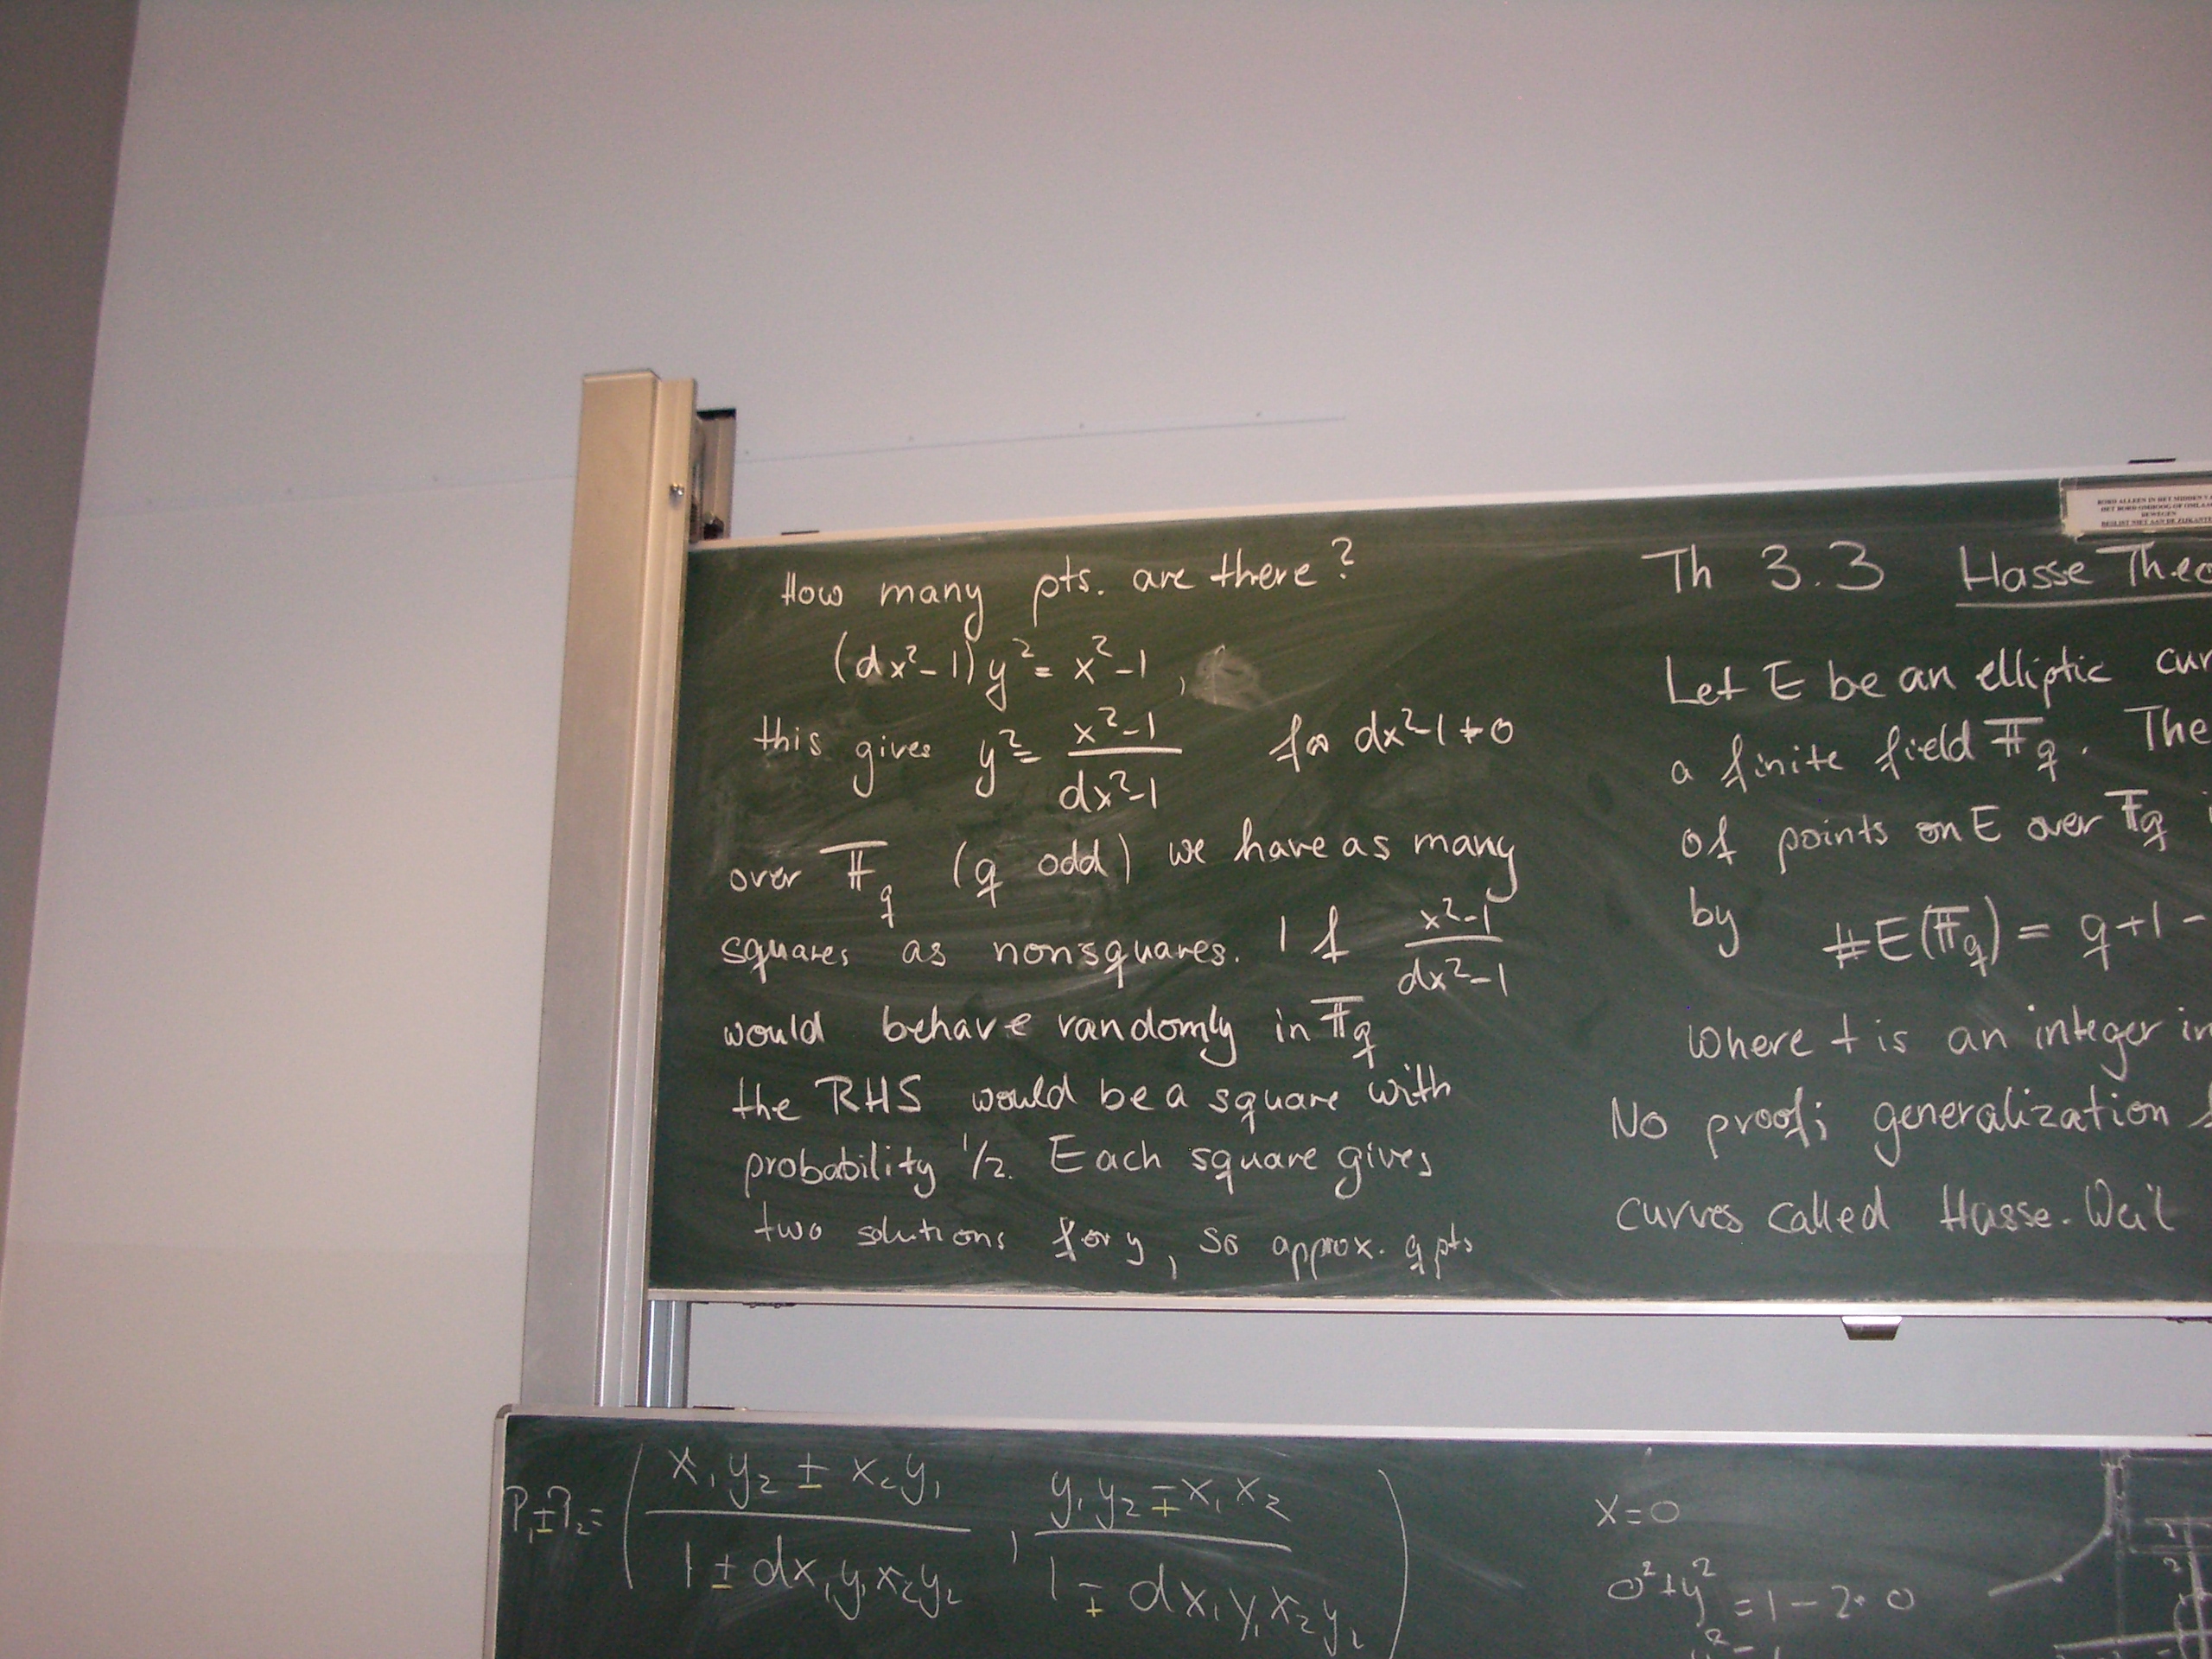 How many pts. are there?
(dx²-1)y² = x²-1,
this gives y² = x²-1 / dx²-1 for dx²-1 ≠ 0
over 𝔽q (q odd) we have as many
squares as nonsquares. If x²-1 / dx²-1
would behave randomly in 𝔽q
the RHS would be a square with
probability 1/2. Each square gives
two solutions for y, so approx. q pts
BORD ALLEEN IN HET MIDDEN
HET BORD OMHOOG OF OMLAAG
BEWEGEN
BESLIST NIET AAN DE ZIJKANTE
Th 3.3 Hasse Theo
Let E be an elliptic cur
a finite field 𝔽q. The
of points on E over 𝔽q
by #E(𝔽q) = q+1-
where t is an integer in
No proof; generalization
curves called Hasse-Weil
P₁±P₂ = (x₁y₂ ± x₂y₁ / 1 ± dx₁y₁x₂y₂ , y₁y₂ ∓ x₁x₂ / 1 ∓ dx₁y₁x₂y₂)
x=0
0²+y² = 1-2·0